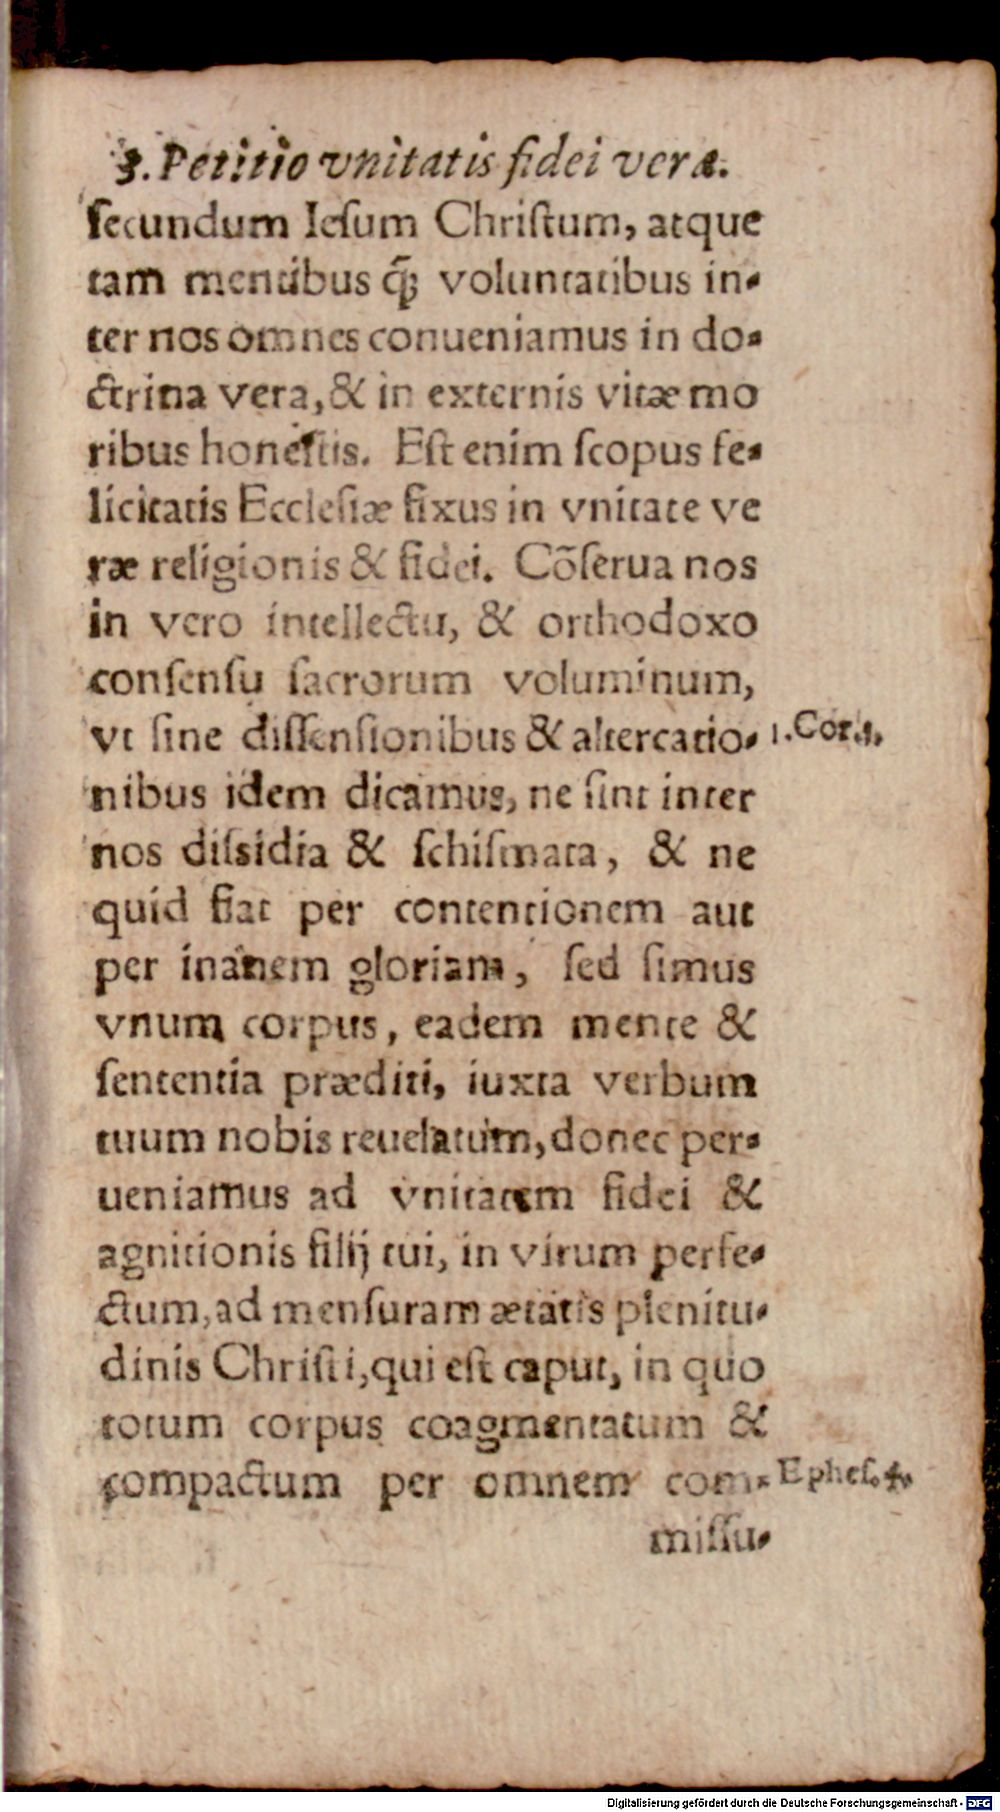 3. Petitio vnitatis fidei veræ.
ſecundum Ieſum Chriſtum, atque
tam mentibus q́ꝫ voluntatibus in-
ter nos omnes conueniamus in do-
ctrina vera, & in externis vitæ mo
ribus honeſtis. Eſt enim ſcopus fe-
licitatis Eccleſiæ fixus in vnitate ve
ræ religionis & fidei. Cõſerua nos
in vero intellectu, & orthodoxo
conſenſu ſacrorum voluminum,
vt ſine diſſenſionibus & altercatio-
1. Cor. 1.
nibus idem dicamus, ne ſint inter
nos diſsidia & ſchiſmata, & ne
quid fiat per contentionem aut
per inanem gloriam, ſed ſimus
vnum corpus, eadem mente &
ſententia præditi, iuxta verbum
tuum nobis reuelatum, donec per-
ueniamus ad vnitatem fidei &
agnitionis filij tui, in virum perfe-
ctum, ad menſuram ætatis plenitu-
dinis Chriſti, qui eſt caput, in quo
totum corpus coagmentatum &
compactum per omnem com-
Epheſ. 4.
miſſu-
Digitalisierung gefördert durch die Deutsche Forschungsgemeinschaft - DFG